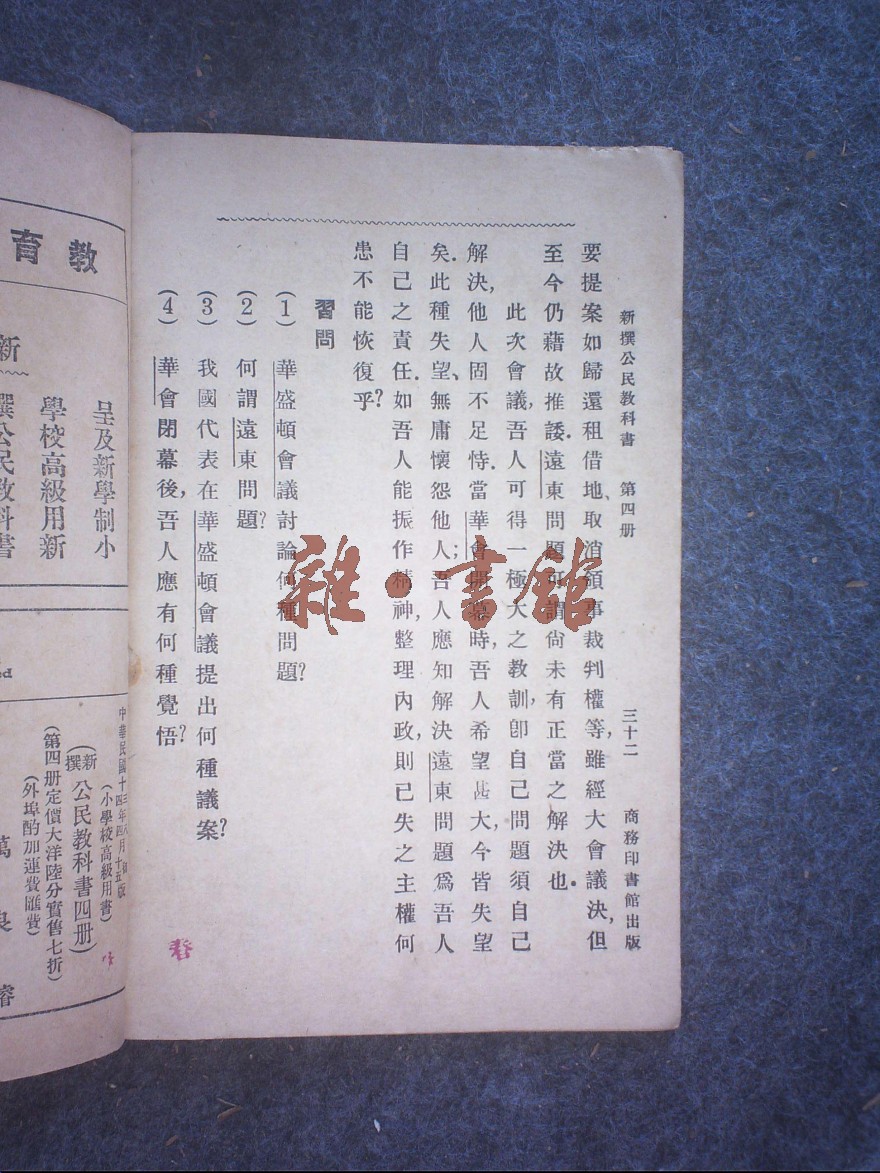 新撰公民教科書　第四册　三十二　商務印書館出版
要提案如歸還租借地、取消領事裁判權等,雖經大會議決,但
至今仍藉故推諉.遠東問題可謂尚未有正當之解決也.
此次會議,吾人可得一極大之教訓,卽自己問題須自己
解決,他人固不足恃.當華會開幕時,吾人希望甚大,今皆失望
矣.此種失望、無庸懷怨他人;吾人應知解決遠東問題爲吾人
自己之責任.如吾人能振作精神,整理內政,則已失之主權何
患不能恢復乎?
習問
(1)　華盛頓會議討論何種問題?
(2)　何謂遠東問題?
(3)　我國代表在華盛頓會議提出何種議案?
(4)　華會閉幕後,吾人應有何種覺悟?
雜·書館
教育
呈及新學制小
學校高級用新
撰公民教科書
新
(小學校高級用書)
(新撰 公民教科書四册)
(第四册定價大洋陸分實售七折)
(外埠酌加運費匯費)